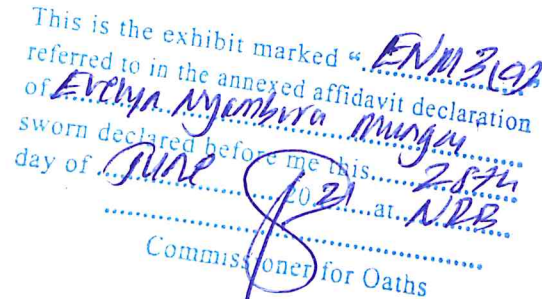 This is the exhibit marked “ ENM3(a)
referred to in the annexed affidavit declaration
of Evelyn Nyambura Mungai
sworn declared before me this 28th
day of June 2021 at NRB
Commissioner for Oaths